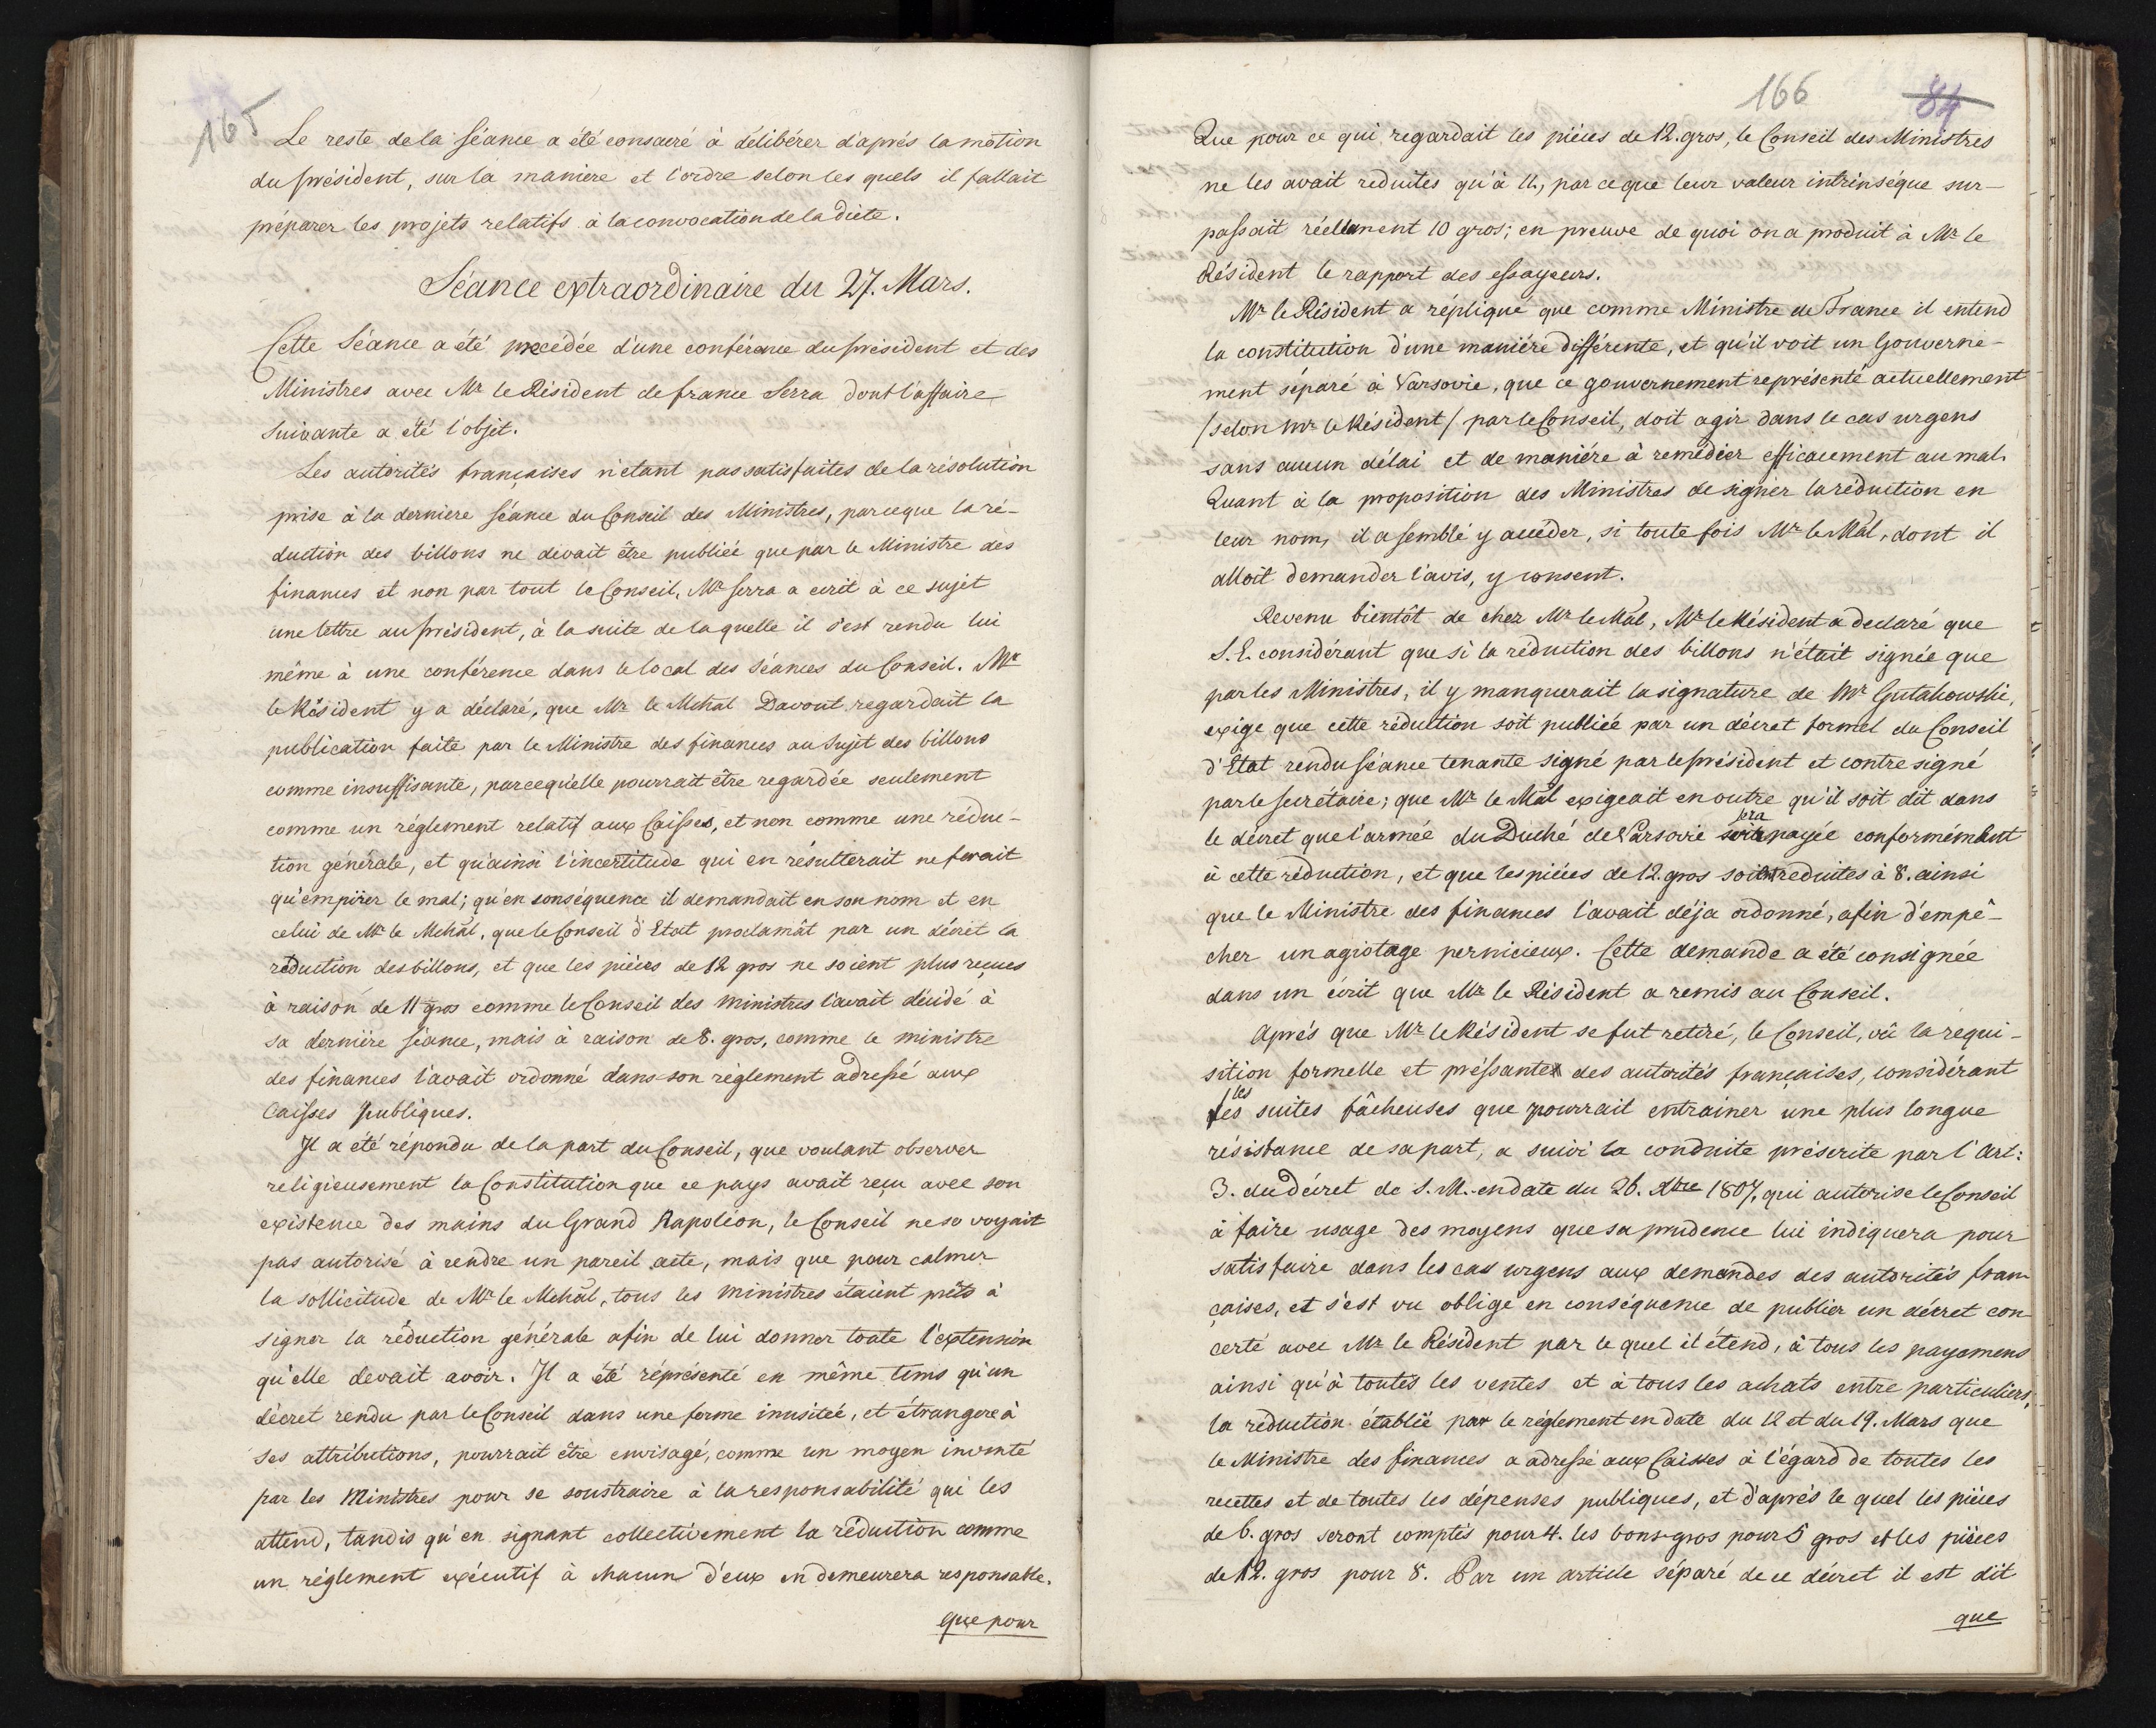 165
Le reste de la Séance a été consacré à délibérer d'aprés la motion
du président, sur la maniere et l'ordre selon les quels il fallait
préparer les projets relatifs à la convocation de la diete.
Séance extraordinaire du 27. Mars.
Cette Séance a été precédée d'une conférence du président et des
Ministres avec Mr le Résident de france Serra dont l'affaire
suivante a été l'objet.
Les autorités françaises n'etant pas satisfaites de la résolution
prise à la derniere séance du Conseil des Ministres, parceque la ré-
duction des billons ne devait être publiée que par le Ministre des
finances et non par tout le Conseil, Mr Serra a ecrit à ce sujet
une lettre au président, à la suite de laquelle il s'est rendu lui
même à une conférence dans le local des Séances du Conseil. Mr
le Résident y a déclaré, que Mr le Mchal Davout regardait la
publication faite par le Ministre des finances au sujet des billons
comme insuffisante, parcequ'elle pourrait être regardée seulement
comme un réglement relatif aux Caisses, et non comme une réduc-
tion générale, et qu'ainsi l'incertitude qui en résulterait ne ferait
qu'empirer le mal; qu'en conséquence il demandait en son nom et en
celui de Mr le Mchal, que le Conseil d'Etat proclamât par un décret la
réduction des billons, et que les piéces de 12 gros ne soient plus reçues
à raison de 11 gros comme le Conseil des ministres l'avait décidé à
sa derniére séance, mais à raison de 8. gros, comme le ministre
des finances l'avait ordonné dans son règlement adressé aux
Caisses publiques.
Il a été répondu de la part du Conseil, que voulant observer
religieusement la Constitution que ce pays avait reçu avec son
existence des mains du Grand Napoléon, le Conseil ne so voyait
pas autorisé à rendre un pareil acte, mais que pour calmer
la sollicitude de Mr le Mchal, tous les ministres étaient prêts à
signer la réduction générale afin de lui donner toute l'extension
qu'elle devait avoir. Il a été réprésenté en même tems qu'un
décret rendu par le Conseil dans une forme inusitée, et étrangere à
ses attributions, pourrait être envisagé, comme un moyen inventé
par les Ministres pour se soustraire à la responsabilité qui les
attend, tandis qu'en signant collectivement la réduction comme
un réglement exécutif à chacun d'eux en demeurera responsable.
que pour
166
84
Que pour ce qui regardait les piéces de 12. gros, le Conseil des Ministres
ne les avait reduites qu'à 11., par ceque leur valeur intrinséque sur-
passait réellement 10 gros; en preuve de quoi on a produit à Mr le
Résident le rapport des essayeurs.
Mr le Résident a répliqué que comme Ministre de France il entend
la constitution d'une maniére différente, et qu'il voit un Gouverne-
ment séparé à Varsovie, que ce gouvernement représenté actuellement
/selon Mr le Résident/ par le Conseil, doit agir dans le cas urgens
sans aucun délai et de maniére à remédier efficacement au mal.
Quant à la proposition des Ministres de signer la réduction en
leur nom, il a semblé y accéder, si toute fois Mr le Mal, dont il
alloit demander l'avis, y consent.
Revenu bientôt de chez Mr le Mal, Mr le Résident a declaré que
S. E. considérant que si la réduction des billons n'était signée que
par les Ministres, il y manquerait la signature de Mr Gutakowski,
exige que cette réduction soit publiée par un décret formel du Conseil
d'Etat rendu séance tenante signé par le président et contre signé
par le secrétaire; que Mr le Mal exigeait en outre qu'il soit dit dans
le décret que l'armée du Duché de Varsovie soit sera payée conformément
à cette réduction, et que les piéces de 12. gros soient reduites à 8. ainsi
que le Ministre des finances l'avait déja ordonné, afin d'empê-
cher un agiotage pernicieux. Cette demande a été consignée
dans un écrit que Mr le Résident a remis au Conseil.
Aprés que Mr le Résident se fut retiré, le Conseil, vû la requi-
sition formelle et préssante des autorités françaises, considérant
les suites fâcheuses que pourrait entrainer une plus longue
résistance de sa part, a suivi la conduite préscrite par l'Art:
3. du décret de S. M. en date du 26. Xbre 1807, qui autorise le Conseil
à faire usage des moyens que sa prudence lui indiquera pour
satisfaire dans les cas urgens aux demandes des autorités fran
çaises, et s'est vu obligé en conséquence de publier un décret con-
certé avec Mr le Résident par le quel il étend, à tous les payemens
ainsi qu'à toutes les ventes et à tous les achats entre particuliers,
la réduction établie par le réglement en date du 12 et du 19. Mars que
le Ministre des finances a adressé aux Caisses à l'égard de toutes les
recettes et de toutes les dépenses publiques, et d'aprés le quel les piéces
de 6. gros seront comptés pour 4. les bons-gros pour 5 gros et les piéces
de 12. gros pour 8. Par un article séparé de ce décret il est dit
que